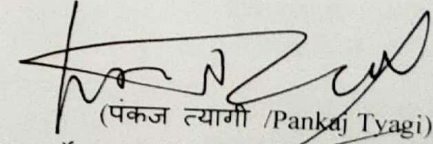 (पंकज त्यागी /Pankaj Tyagi)